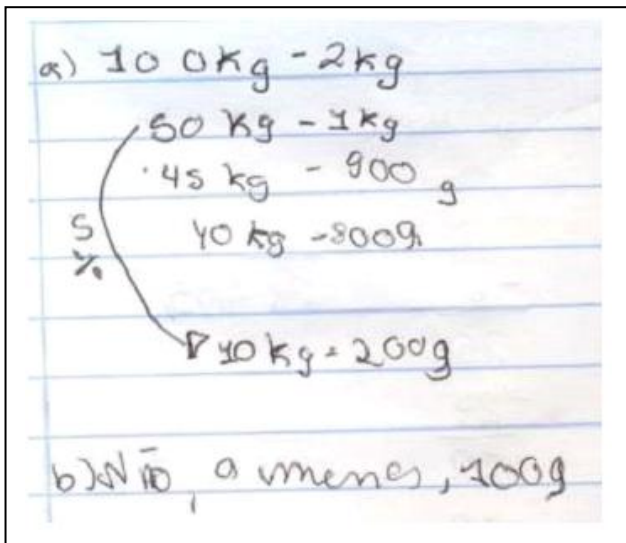 a) 100kg - 2kg
50 kg - 1kg
45 kg - 900 g
40 kg - 800g
5
10 kg = 200g
b) Não, a menos, 100g